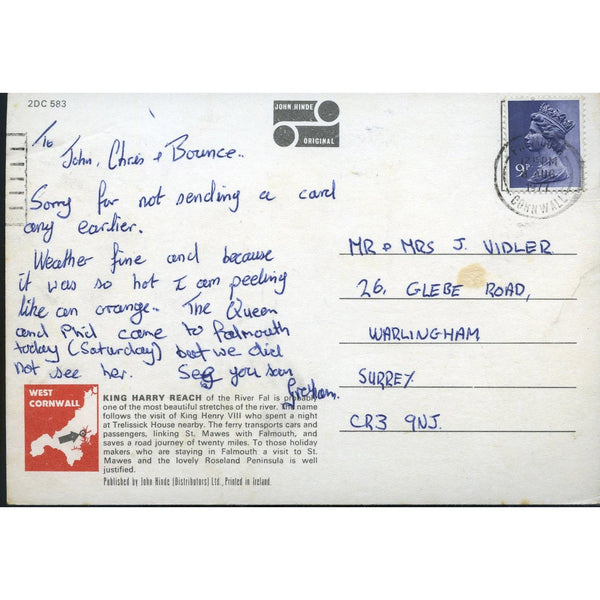 2DC 583
JOHN HINDE
ORIGINAL
9P
PM
AUG
1977
CORNWALL
To
John, Chris & Bounce..
Sorry for not sending a card
any earlier.
Weather fine and because
it was so hot I am peeling
like an orange.. The Queen
and Phil came to Falmouth
today (Saturday) but we did
not see her. See you soon
Graham.
MR & MRS J. VIDLER
26, GLEBE ROAD,
WARLINGHAM
SURREY.
CR3 9NJ.
WEST
CORNWALL
KING HARRY REACH of the River Fal is probably
one of the most beautiful stretches of the river. The name
follows the visit of King Henry VIII who spent a night
at Trelissick House nearby. The ferry transports cars and
passengers, linking St. Mawes with Falmouth, and
saves a road journey of twenty miles. To those holiday
makers who are staying in Falmouth a visit to St.
Mawes and the lovely Roseland Peninsula is well
justified.
Published by John Hinde (Distributors) Ltd., Printed in Ireland.